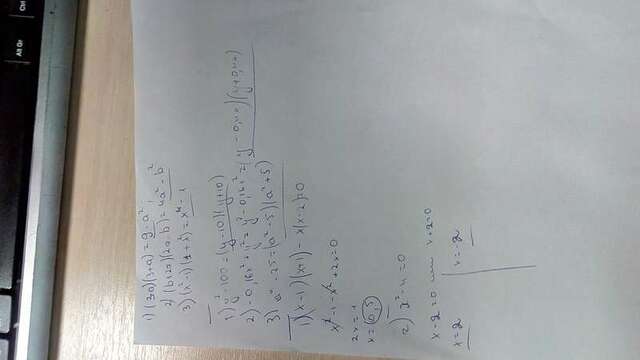 1) (3-a)(3+a)=9-a²
2) (b+2a)(2a-b)=4a²-b²
3) (x²-1)(x²+1)=x⁴-1
1) y²-100=(y-10)(y+10)
2) -0,16x²+y²=y²-0,16x²=(y-0,4x)(y+0,4x)
3) a⁴-25=(a²-5)(a²+5)
1) (x-1)(x+1)-x(x-2)=0
x²-1-x²+2x=0
2x=1
x=0,5
2) x²-4=0
x-2=0 или x+2=0
x=2 x=-2
Ctrl
Alt Gr